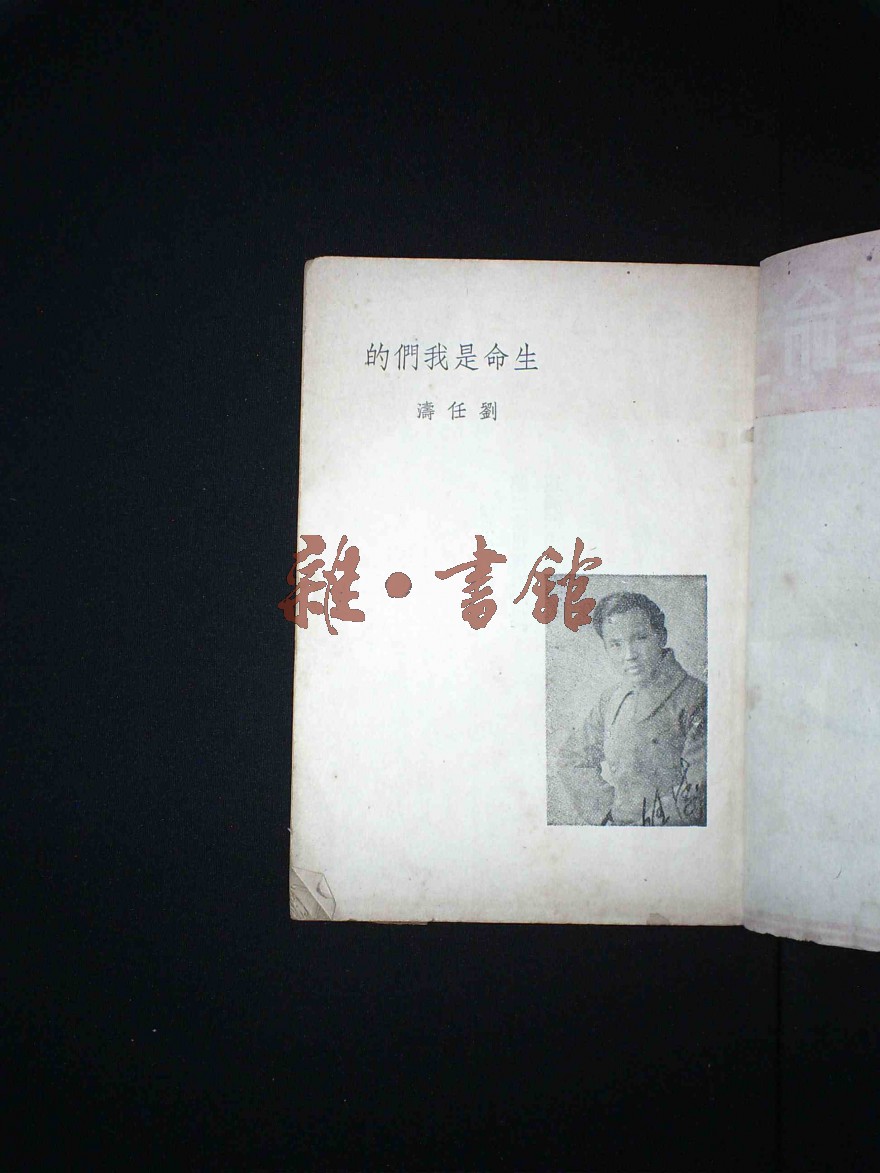 生命是我們的
劉任濤
雜·書館